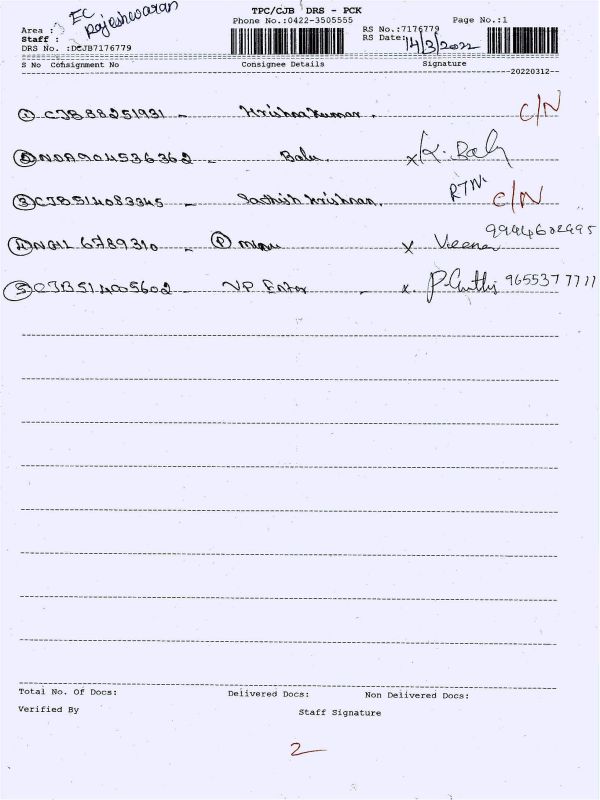 EC
TPC/CJB DRS - PCK
Area : Rajeshwaran
Phone No.:0422-3505555
Page No.:1
Staff :
RS No.:7176779
DRS No. :DCJB7176779
RS Date: 14/3/2022
S No Consignment No Consignee Details Signature
20220312
① CJB 88251931 - Krishna Kumar. C/N
② NDA904536362 - Balu x K. Baly
③ CJB514083345 - Sadhish Krishnan. RTN. C/N
④ NGIL 6789310 - Ⓟ x Veena
⑤ CJB514005602 - VP - x. 9655377711
Total No. Of Docs: Delivered Docs: Non Delivered Docs:
Verified By Staff Signature
2